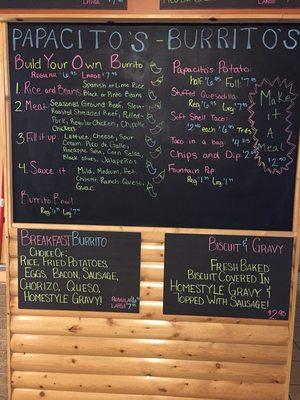 PAPACITO'S - BURRITO'S
Build Your Own Burrito
Regular $6.95 Large $7.95
1. Rice and Beans Spanish or Lime Rice
Black or Refried Beans
2. Meat Seasoned Ground Beef, Slow-
Roasted Shredded Beef, Pulled-
Pork, Regular Chicken, Chipotle
Chicken
3. Fill it up Lettuce, Cheese, Sour
Cream, Pico de Gallo,
Pineapple Salsa, Corn Salsa,
Black olives, Jalapeños
4. Sauce it Mild, Medium, Hot,
Chipotle Ranch, Queso,
Guac.
Burrito Bowl
Reg Lg
Papacito's Potato
Half Full
Stuffed Quesadilla
Reg Lrg
Soft Shell Taco
each
Taco in a bag
Chips and Dip
Fountain Pop
Reg Lg
Make
it A
Meal
BREAKFAST BURRITO
CHOICE OF:
RICE, FRIED POTATOES,
EGGS, BACON, SAUSAGE,
CHORIZO, QUESO,
HOMESTYLE GRAVY!
REGULAR
LARGE
BISCUIT & GRAVY
FRESH BAKED
BISCUIT COVERED IN
HOMESTYLE GRAVY &
TOPPED WITH SAUSAGE!